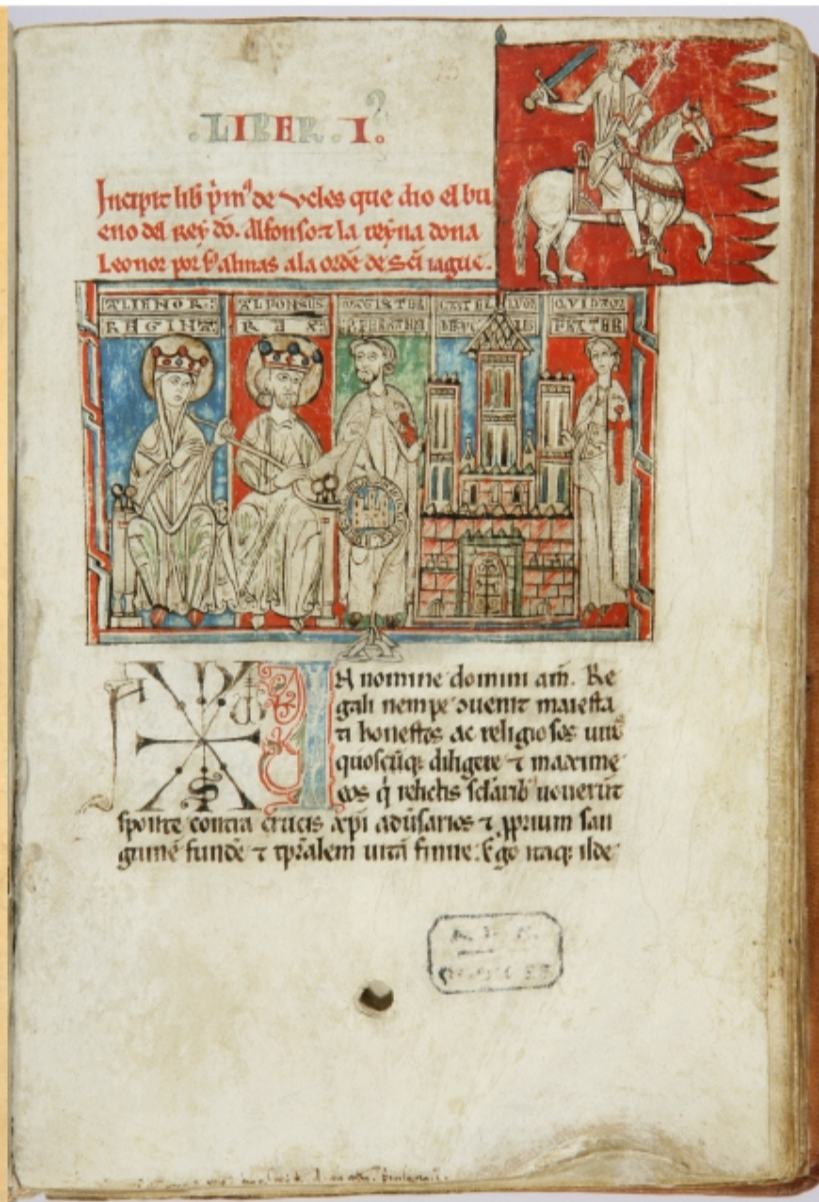 .LIBER.I.
Incipit lib p̃m9 de Veles que dio el bu
eno del Rey dõ. Alfonso ⁊ la reyna dona
Leonor por s9 almas a la ordẽ de Sc̃i iague.
ALIENOR: ALFONSUS MAGISTER
REGINA: REX:
FRATER
IN nomine domini am̃. Re
gali nempe ↄuenit maiesta
ti honestos ac religiosos uiros
quoscũq; diligere ⁊ maxime
eos q̇ relictis sc̃larib uouerũt
sponte contra crucis xp̃i adũsarios ⁊ ꝓprium san
guinẽ fundẽ ⁊ tp̃ralem uitã finire. Ego itaq; ilde